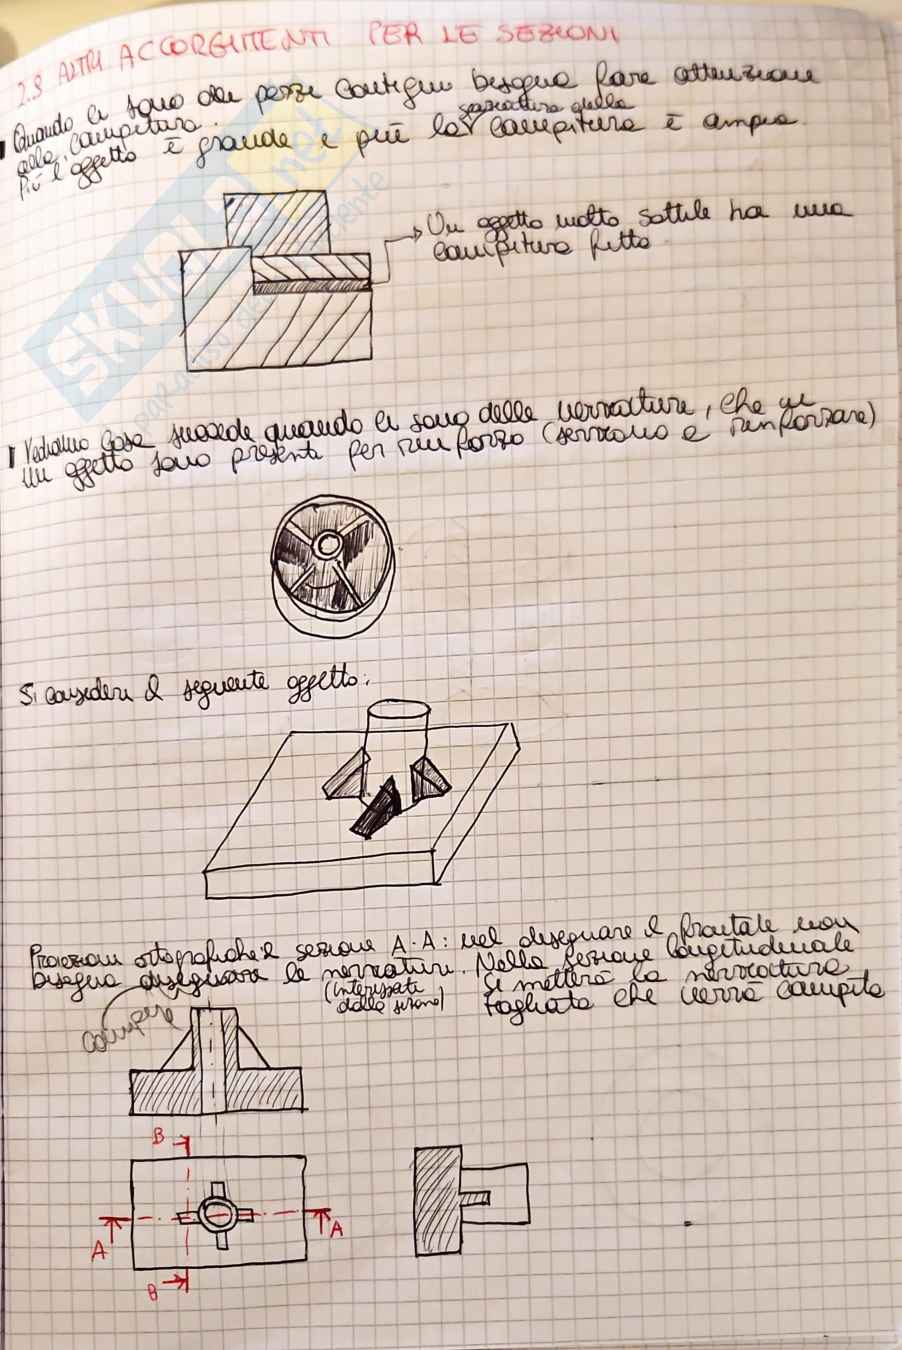 2.8 ALTRI ACCORGIMENTI PER LE SEZIONI
Quando ci sono dei pezzi contigui bisogna fare attenzione
alla campitura.
spaziatura della
Più l'oggetto è grande e più la campitura è ampia.
Un oggetto molto sottile ha una
campitura fitta.
Vediamo cosa succede quando ci sono delle nervature, che in
un oggetto sono presenti per rinforzo (servono a rinforzare)
Si consideri il seguente oggetto:
Proiezioni ortografiche e sezione A-A: nel disegnare il frontale non
bisogna disegnare le nervature. Nella sezione longitudinale
(interessate si metterà la nervatura
dalla sezione) tagliata che verrà campita
campire
B
A
A
B
SKUOLA.net
paradiso dello studente